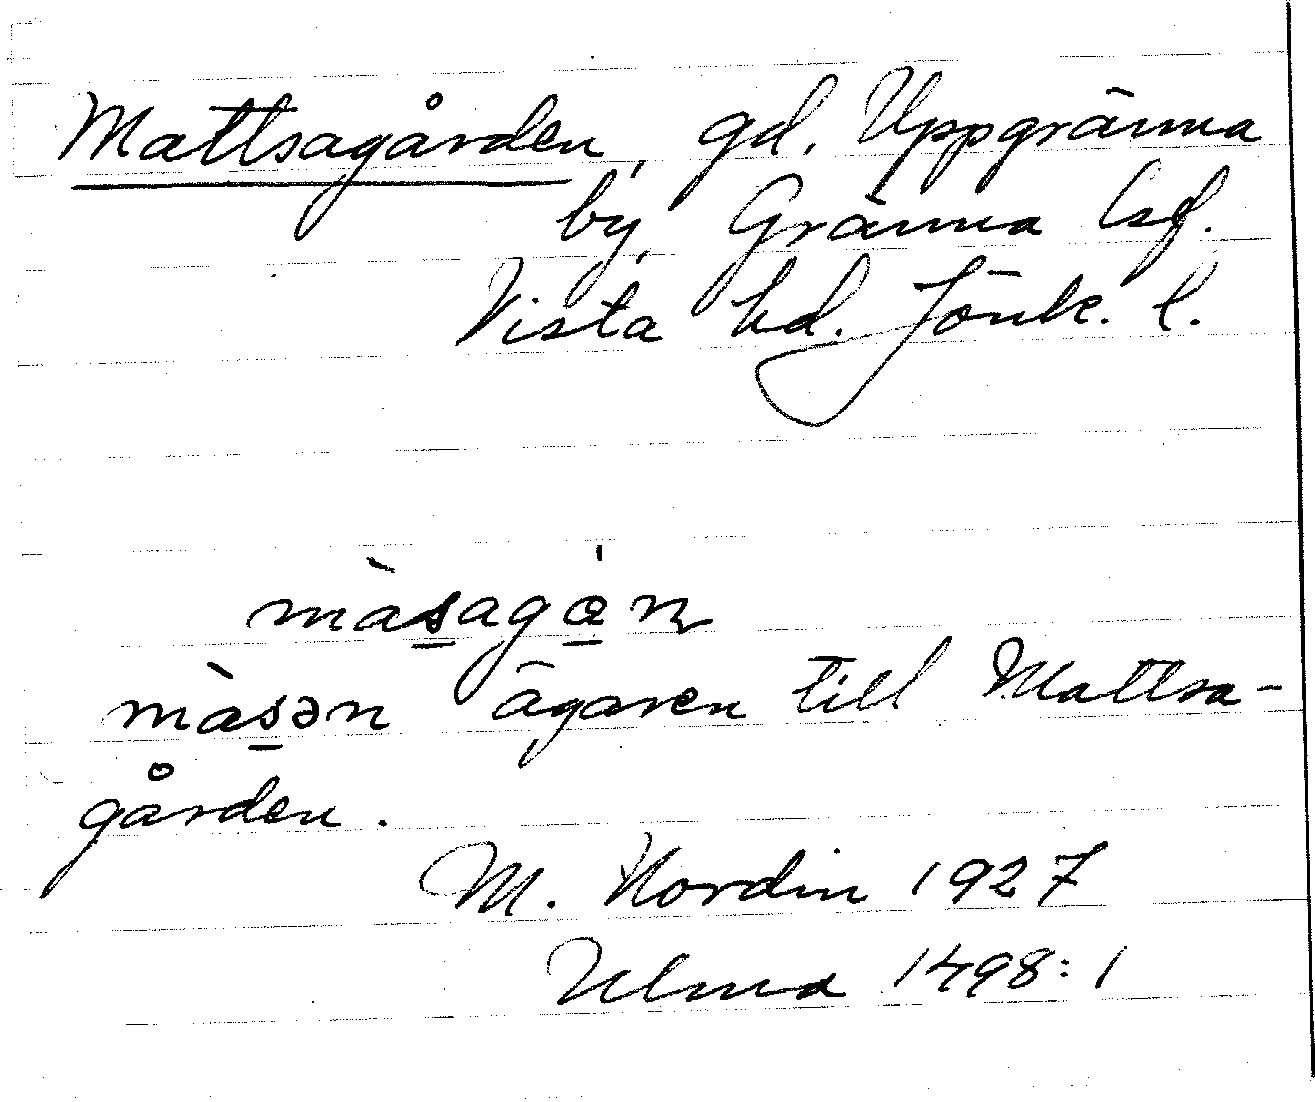 Mattsagården, gd. Uppgränna
by, Gränna lsf.
Vista hd. Jönk. l.
màsagȧn
màsən ägaren till Mattsa-
gården.
M. Nordin 1927
Ulma 1498:1